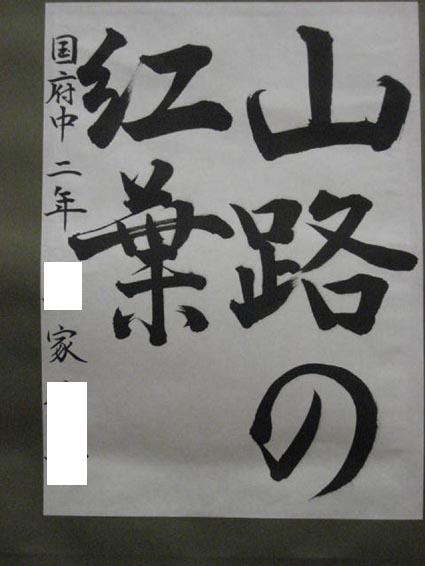 山路の
紅葉
国府中二年 家